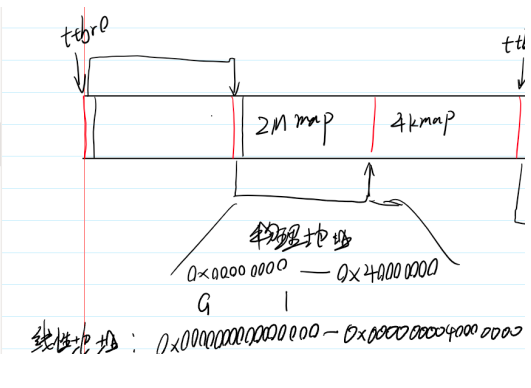 ttbr0
ttb
2M map 4kmap
物理地址
0x00000000 — 0x40000000
G 1
线性地址: 0x0000000000000000 - 0x0000000040000000